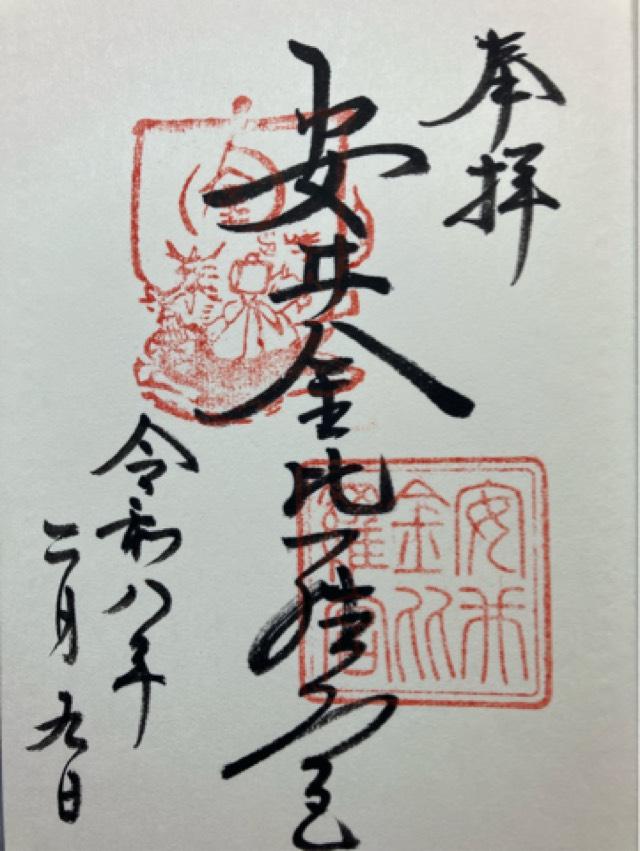 奉拝
安井金比羅宮
令和八年
二月九日
金
安井
金比
羅宮